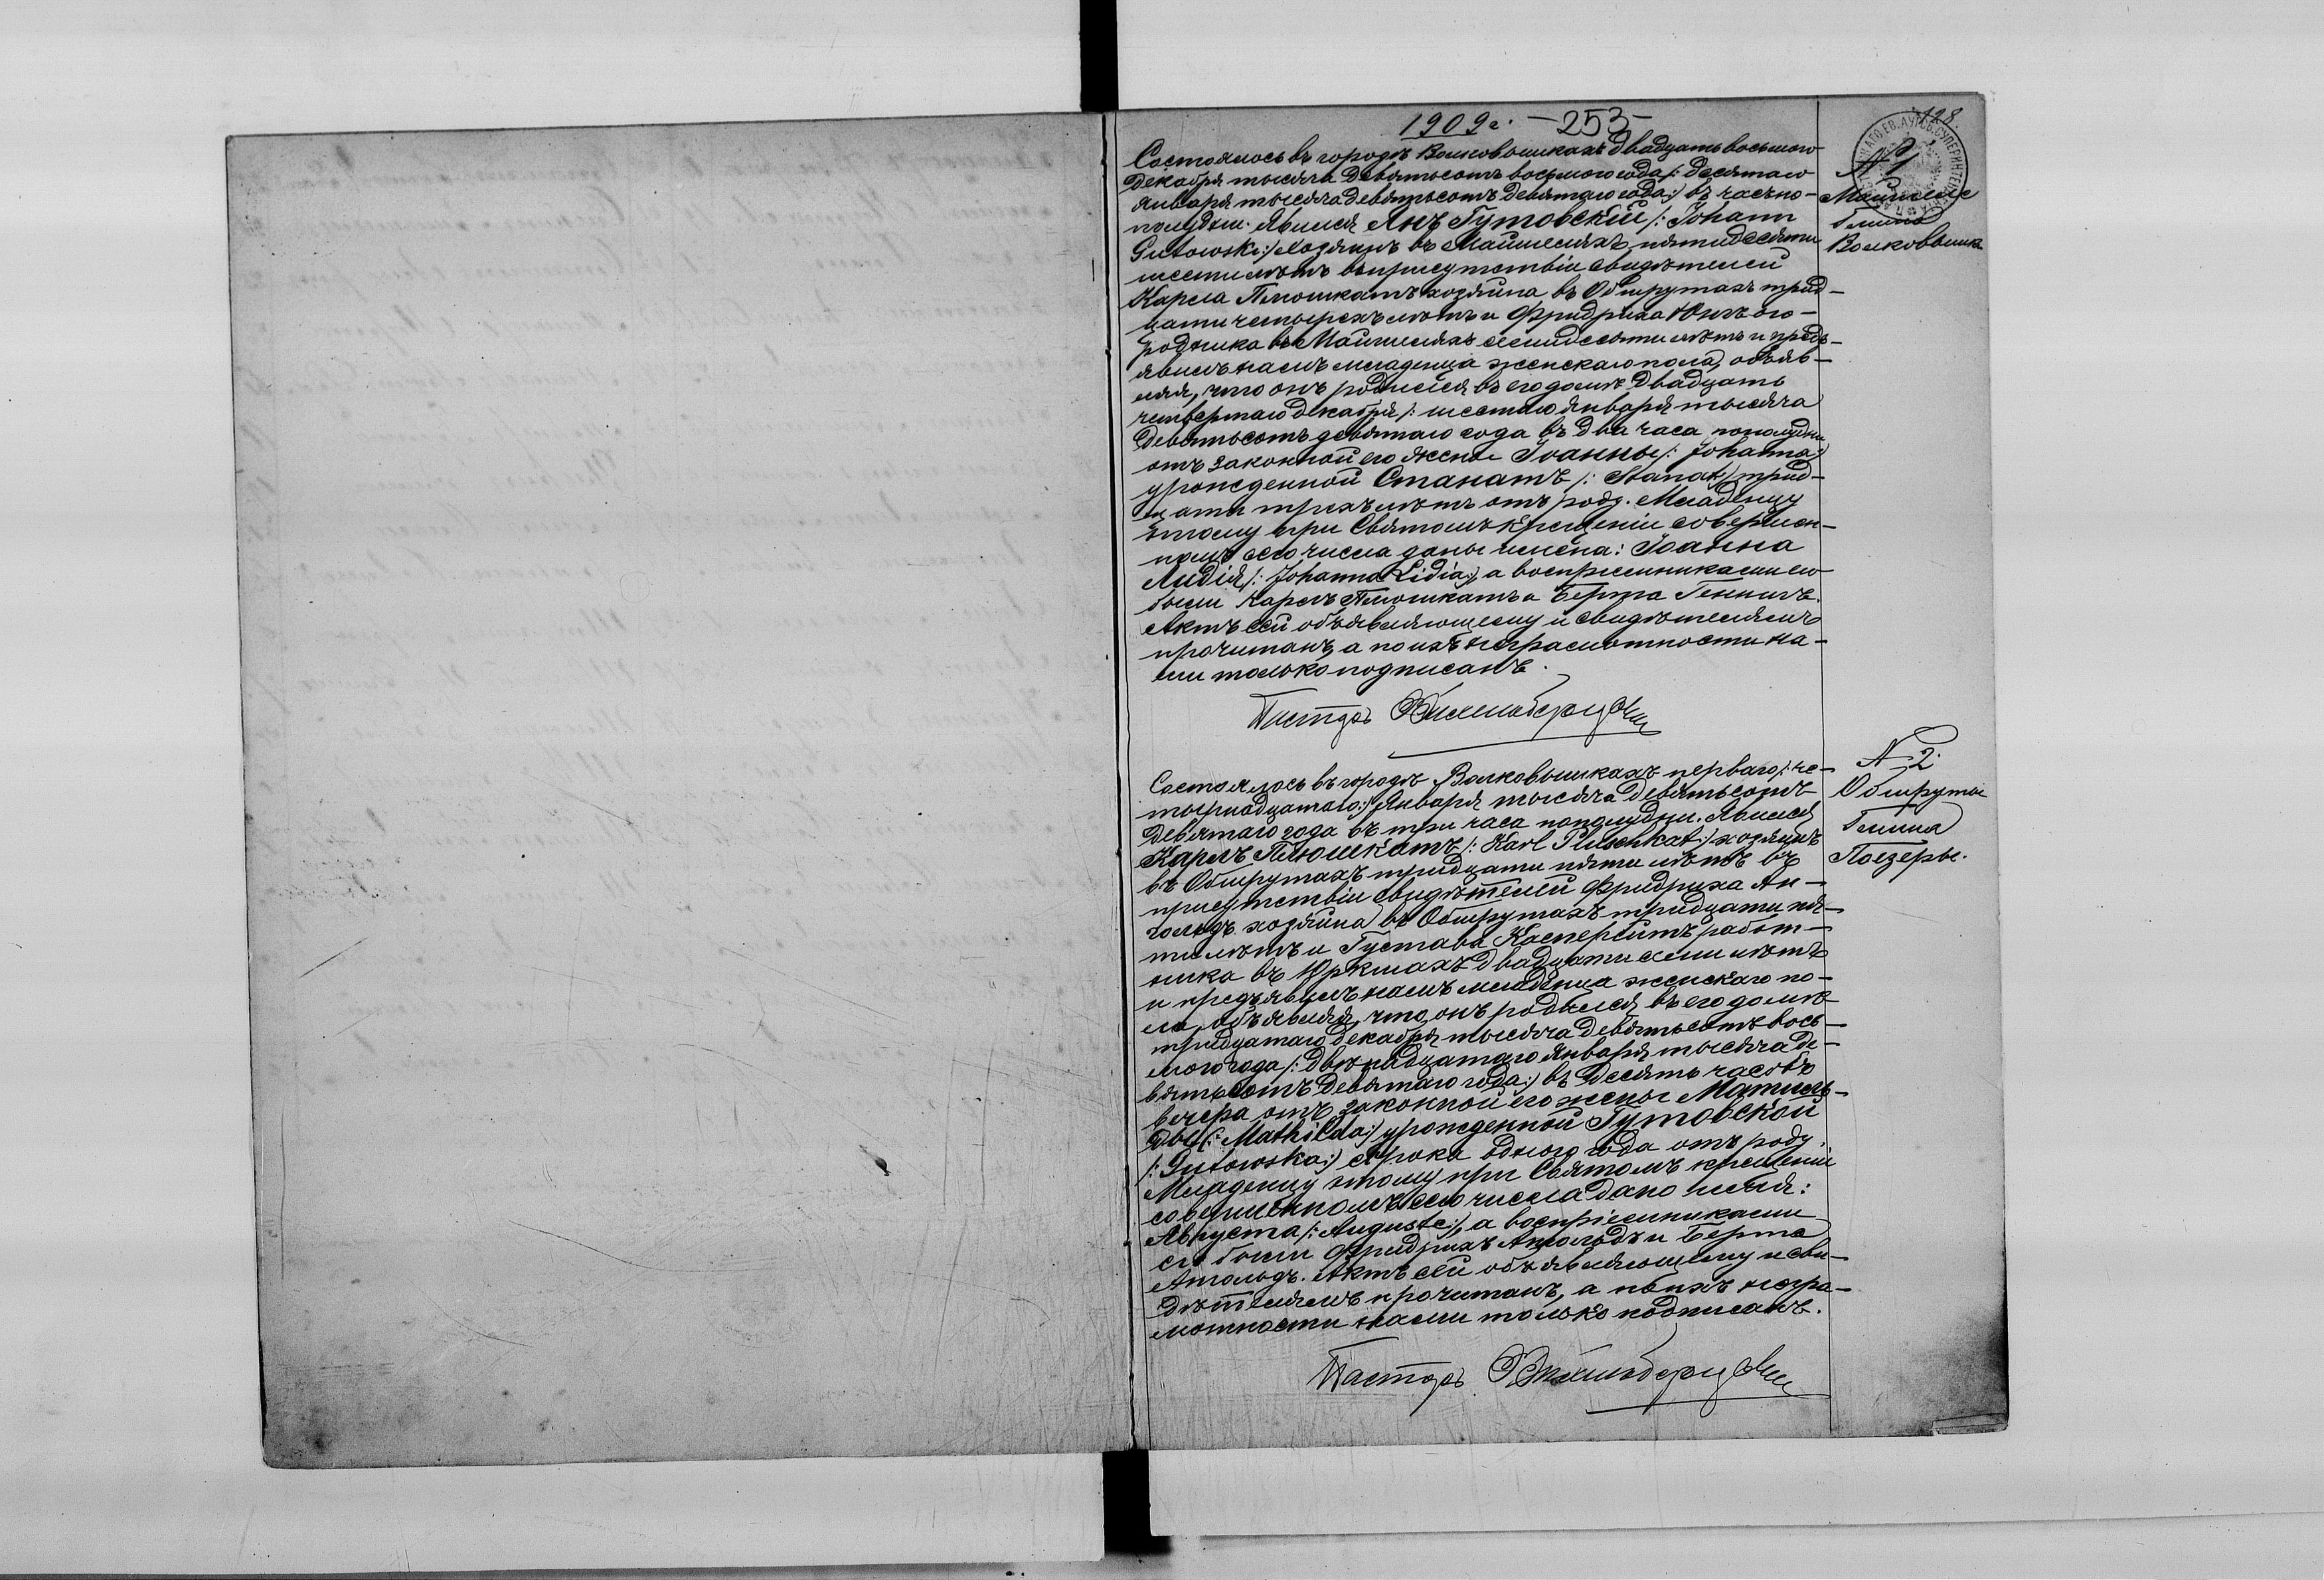 1909 г. -253-
128.
Состоялось въ городѣ Волковышкахъ двадцать восьмого
декабря тысяча девятьсотъ восьмого года /: десятаго
января тысяча девятьсотъ девятаго года :/ въ часъ по-
полудни. Явился Янъ Гутовскій /: Johann
Gutowski :/ хозяинъ въ Майшеляхъ пятидесяти
шести лѣтъ въ присутствіи свидѣтелей
Карла Плюшкатъ хозяина въ Обшрутахъ трид-
цати четырехъ лѣтъ и Фридриха Юнъ ого-
родника въ Майшеляхъ семидесяти лѣтъ и предъ-
явилъ намъ младенца женскаго пола, объяв-
ляя, что онъ родился въ его домѣ двадцать
четвертаго декабря /: шестаго января тысяча
девятьсотъ девятаго года въ два часа пополудни
отъ законной его жены Іоанны /: Johanna :/
урожденной Станатъ /: Stanat :/ трид-
цати трехъ лѣтъ отъ роду. Младенцу
этому при Святомъ крещеніи совершен-
номъ сего числа даны имена: Іоанна
Лидія /: Johanna Lidia :/, а воспріемниками его
были Карлъ Плюшкатъ и Берта Геннигъ.
Актъ сей объявляющему и свидѣтелямъ
прочитанъ, а по ихъ неграмотности на-
ми только подписанъ.
Пасторъ
№ 1
Майшеле
Гмина
Волковышки
Состоялось въ городѣ Волковышкахъ перваго /: че-
тырнадцатаго :/ Января тысяча девятьсотъ
девятаго года въ три часа пополудни. Явился
Карлъ Плюшкатъ /: Karl Pluschkat :/ хозяинъ
въ Обшрутахъ тридцати пяти лѣтъ въ
присутствіи свидѣтелей Фридриха Ан-
гольдъ хозяина въ Обшрутахъ тридцати пя-
ти лѣтъ и Густава Касперситъ работ-
ника въ Юркшахъ двадцати семи лѣтъ
и предъявилъ намъ младенца женскаго по-
ла, объявляя, что онъ родился въ его домѣ
тридцатаго декабря тысяча девятьсотъ вось-
мого года /: двѣнадцатаго января тысяча де-
вятьсотъ девятаго года :/ въ десять часовъ
вечера отъ законной его жены Матиль-
ды /: Mathilda :/ урожденной Гутовской
/: Gutowska :/ сорока одного года отъ роду.
Младенцу этому при Святомъ крещеніи
совершенномъ сего числа дано имя:
Августа /: Auguste :/, а воспріемниками
его были Фридрихъ Ангольдъ и Берта
Ангольдъ. Актъ сей объявляющему и сви-
дѣтелямъ прочитанъ, а по ихъ негра-
мотности нами только подписанъ.
Пасторъ
№ 2.
Обшруты
Гмина
Поезеры.